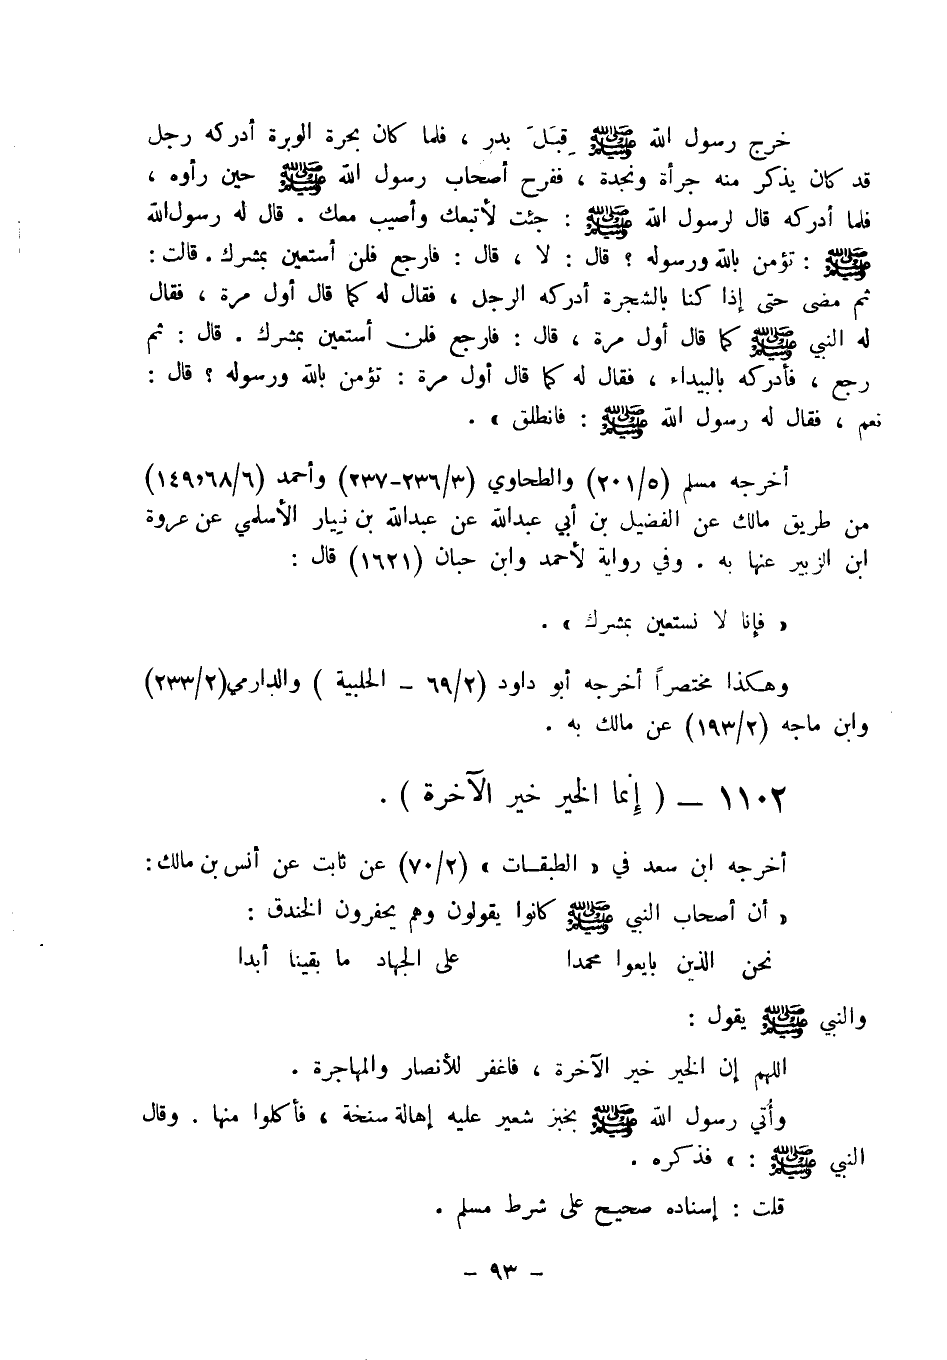 خرج رسول الله ﷺ قِبَلَ بدر ، فلما كان بحرة الوبرة أدركه رجل
قد كان يذكر منه جرأة ونجدة ، ففرح أصحاب رسول الله ﷺ حين رأوه ،
فلما أدركه قال لرسول الله ﷺ : جئت لأتبعك وأصيب معك . قال له رسول الله
ﷺ : تؤمن بالله ورسوله ؟ قال : لا ، قال : فارجع فلن أستعين بمشرك . قالت :
ثم مضى حتى إذا كنا بالشجرة أدركه الرجل ، فقال له كما قال أول مرة ، فقال
له النبي ﷺ كما قال أول مرة ، قال : فارجع فلن أستعين بمشرك . قال : ثم
رجع ، فأدركه بالبيداء ، فقال له كما قال أول مرة : تؤمن بالله ورسوله ؟ قال :
نعم ، فقال له رسول الله ﷺ : فانطلق » .
أخرجه مسلم (٢٠١/٥) والطحاوي (٢٣٦/٣-٢٣٧) وأحمد (٦٨/٦و١٤٩)
من طريق مالك عن الفضيل بن أبي عبدالله عن عبدالله بن نيار الأسلمي عن عروة
ابن الزبير عنها به . وفي رواية لأحمد وابن حبان (١٦٢١) قال :
« فإنا لا نستعين بمشرك » .
وهكذا مختصراً أخرجه أبو داود (٦٩/٢ – الحلبية ) والدارمي(٢٣٣/٢)
وابن ماجه (١٩٣/٢) عن مالك به .
١١٠٢ – ( إنما الخير خير الآخرة ) .
أخرجه ابن سعد في « الطبقات » (٧٠/٢) عن ثابت عن أنس بن مالك :
« أن أصحاب النبي ﷺ كانوا يقولون وهم يحفرون الخندق :
نحن الذين بايعوا محمدا على الجهاد ما بقينا أبدا
والنبي ﷺ يقول :
اللهم إن الخير خير الآخرة ، فاغفر للأنصار والمهاجرة .
وأُتي رسول الله ﷺ بخبز شعير عليه إهالة سنخة ، فأكلوا منها . وقال
النبي ﷺ : » فذكره .
قلت : إسناده صحيح على شرط مسلم .
- ٩٣ -